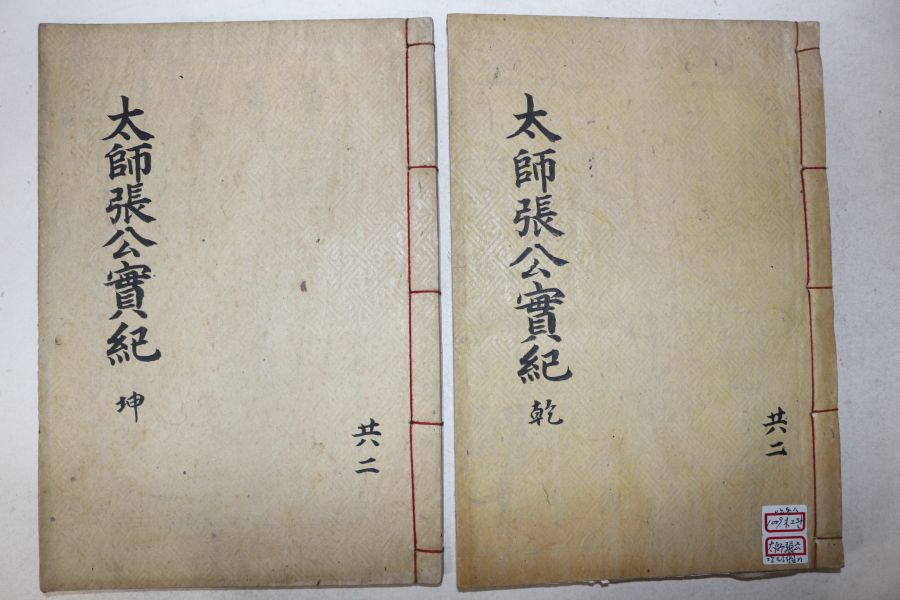 太師張公實紀 乾
共二
太師張公實紀 坤
共二
太師張公